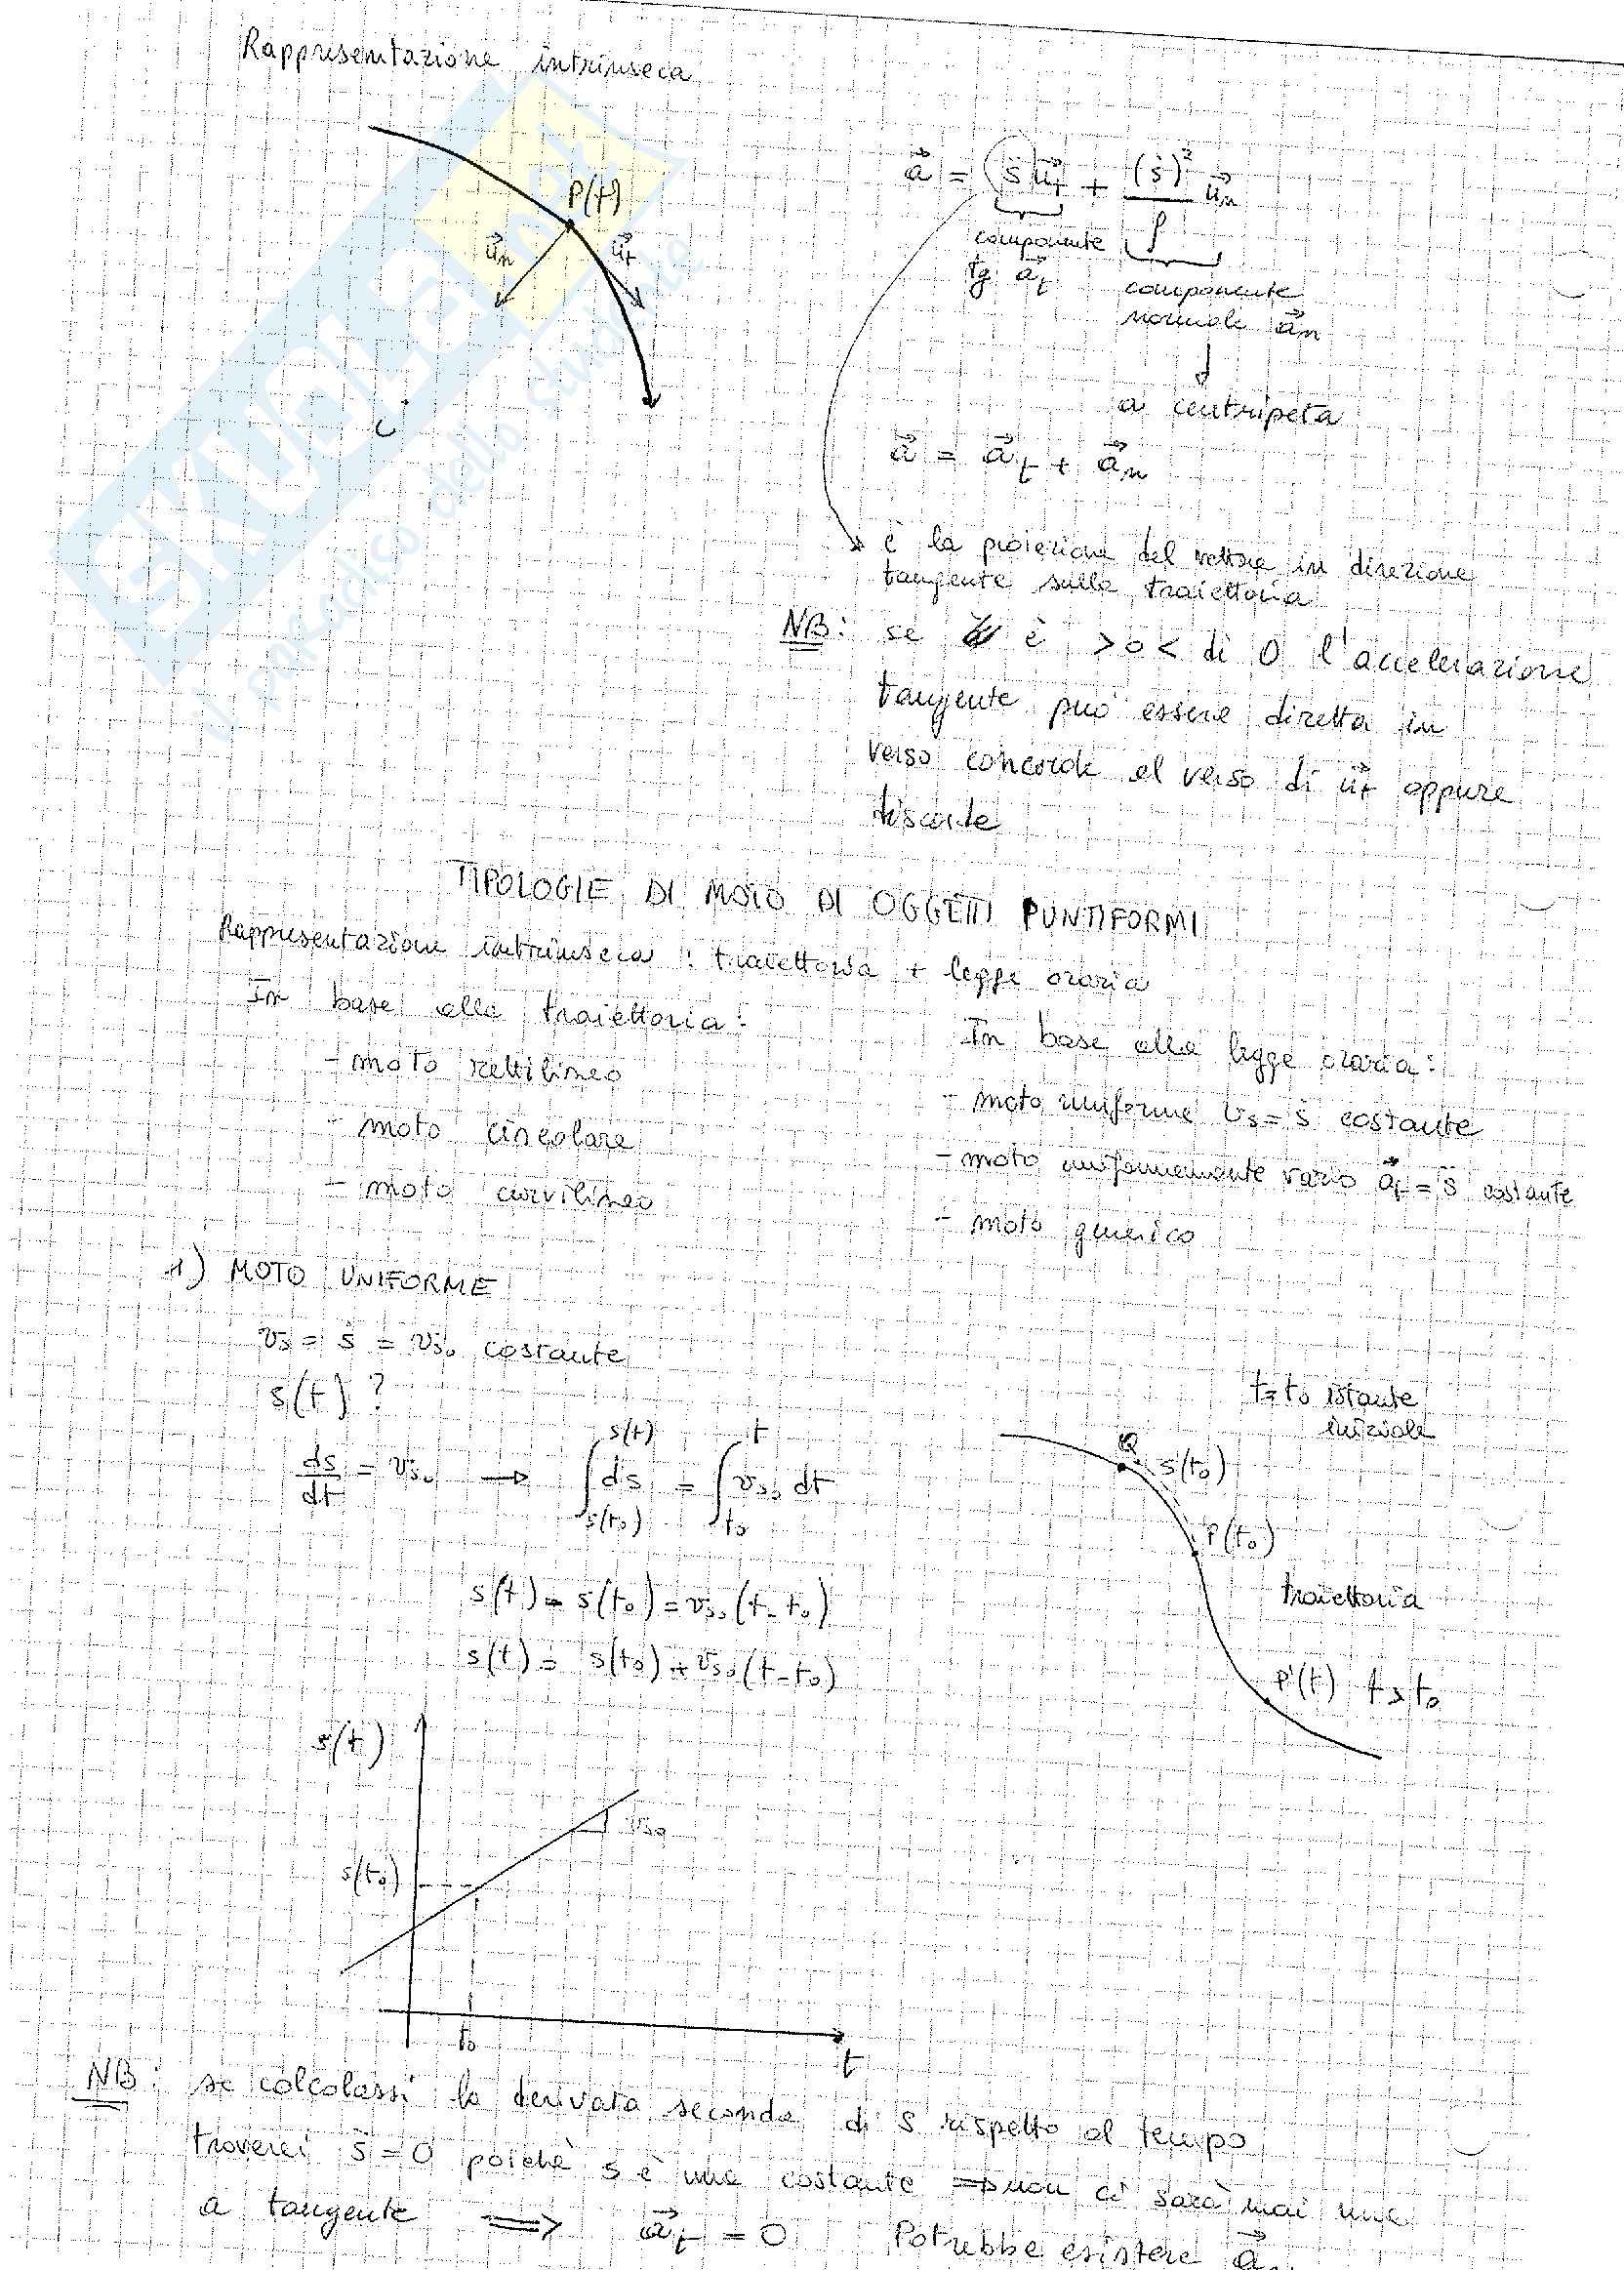 Rappresentazione intrinseca
P(t)
u⃗n
u⃗t
C
a⃗ = s̈ u⃗t + (ṡ)² / ρ u⃗n
componente
tg a⃗t
componente
normale a⃗n
a centripeta
a⃗ = a⃗t + a⃗n
è la proiezione del vettore in direzione
tangente sulla traiettoria
NB: se è > o < di 0 l'accelerazione
tangente può essere diretta in
verso concorde al verso di u⃗t oppure
discorde
TIPOLOGIE DI MOTO DI OGGETTI PUNTIFORMI
Rappresentazione intrinseca: traiettoria + legge oraria
In base alla traiettoria:
- moto rettilineo
- moto circolare
- moto curvilineo
In base alla legge oraria:
- moto uniforme vs = ṡ costante
- moto uniformemente vario a⃗t = s̈ costante
- moto generico
1) MOTO UNIFORME
vs = ṡ = vs₀ costante
s(t)?
ds/dt = vs₀ → ∫_{s(t₀)}^{s(t)} ds = ∫_{t₀}^{t} vs₀ dt
s(t) - s(t₀) = vs₀(t - t₀)
s(t) = s(t₀) + vs₀(t - t₀)
t=t₀ istante
iniziale
Q
s(t₀)
P(t₀)
traiettoria
P'(t) t > t₀
s(t)
vs₀
s(t₀)
t₀
t
NB: se calcolassi la derivata seconda di s rispetto al tempo
troverei s̈ = 0 poichè ṡ è una costante ⇒ non ci sarà mai una
a tangente ⇒ a⃗t = 0 Potrebbe esistere a⃗n